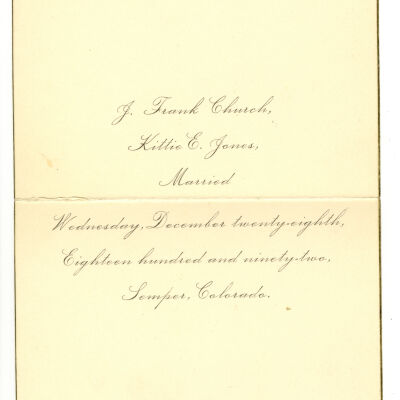 J. Frank Church,
Kittie E. Jones,
Married
Wednesday, December twenty-eighth,
Eighteen hundred and ninety-two,
Semper, Colorado.